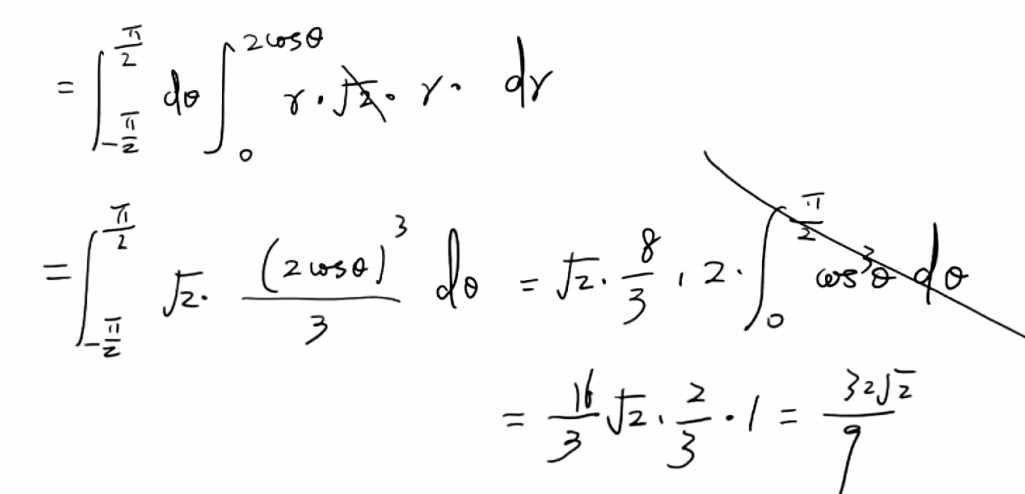 = ∫_{-π/2}^{π/2} dθ ∫_0^{2cosθ} r · √2 · r · dr
= ∫_{-π/2}^{π/2} √2 · (2cosθ)^3 / 3 dθ = √2 · 8/3 · 2 · ∫_0^{π/2} cos^3θ dθ
= 16/3 √2 · 2/3 · 1 = 32√2 / 9